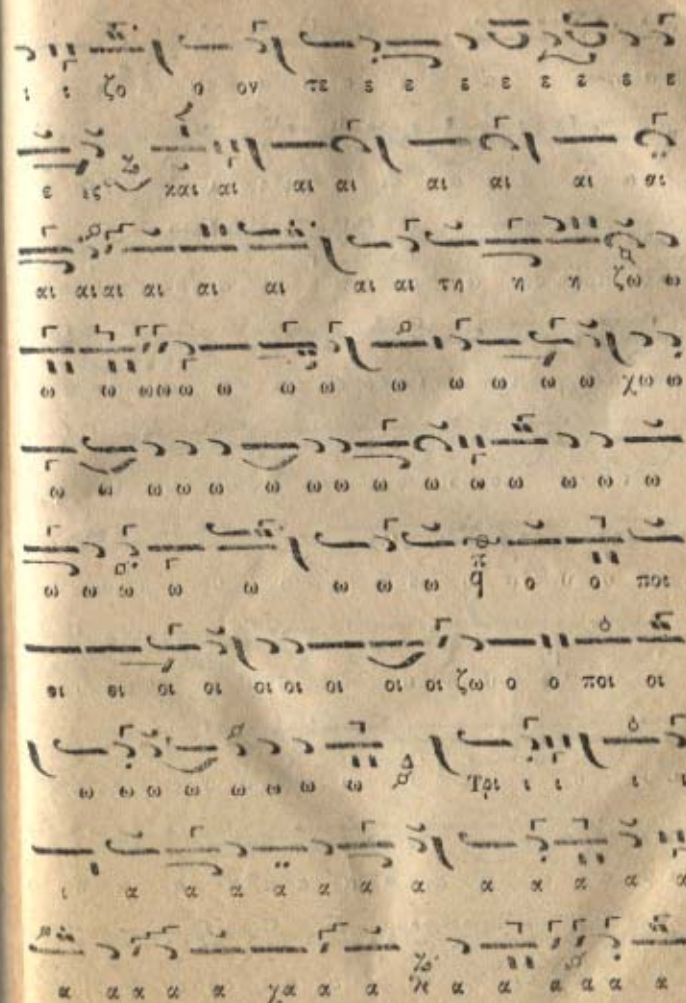 ι ι ζο ο ον τε ε ε ε ε ε ε ε ε
ε ες και αι αι αι αι αι αι αι
αι αι αι αι αι αι αι αι τη η η ζω ω
ω ω ω ω ω ω ω ω ω ω ω ω ω χω ω
ω ω ω ω ω ω ω ω ω ω ω ω ω ω ω
ω ω ω ω ω ω ω ω ο ο ποι
οι οι οι οι οι οι οι οι οι ζω ο ο ποι οι
ω ω ω ω ω ω ω Τρι ι ι ι ι
ι α α α α α α α α α α α α
α α α α α χα α α α α α α α α